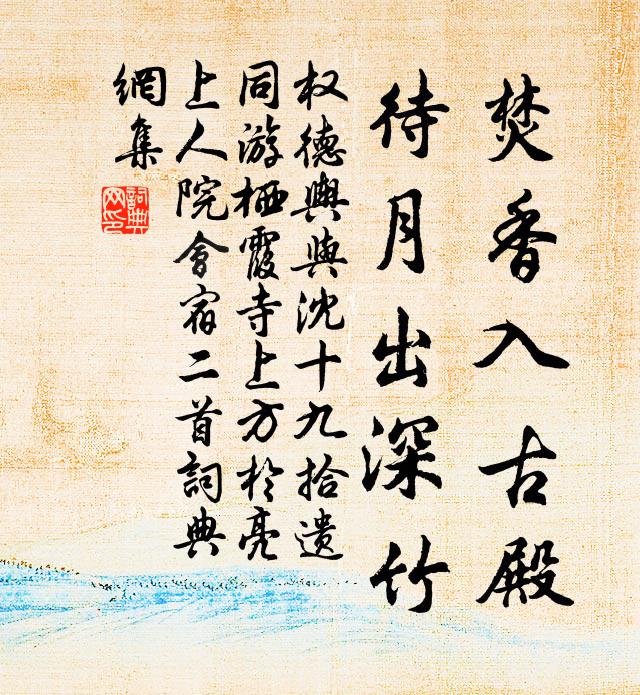 焚香入古殿
待月出深竹
权德輿與沈十九拾遗
同游栖霞寺上方於亮
上人院會宿二首詞典
網集
詞典
网印